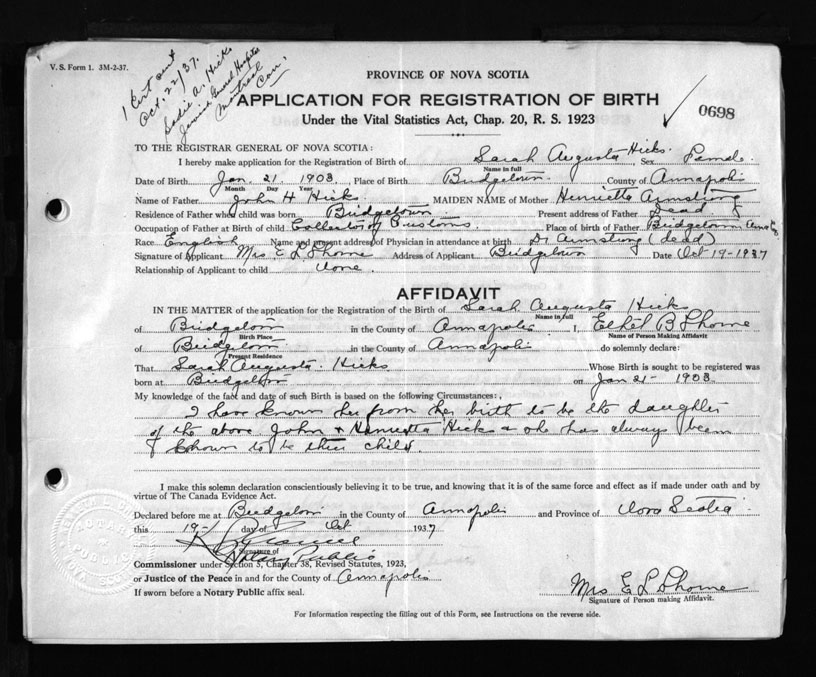 V. S. Form 1. 3M-2-37.
1 Cert sent
Oct. 22/37.
Sadie A. Hicks
Jewish General Hospital
Montreal
Can.
PROVINCE OF NOVA SCOTIA
APPLICATION FOR REGISTRATION OF BIRTH
0698
Under the Vital Statistics Act, Chap. 20, R. S. 1923
TO THE REGISTRAR GENERAL OF NOVA SCOTIA:
I hereby make application for the Registration of Birth of Sarah Augusta Hicks. Sex Female
Name in full
Date of Birth Jan. 21. 1903 Place of Birth Bridgetown. County of Annapolis
Month Day Year
Name of Father John H Hicks MAIDEN NAME of Mother Henrietta Armstrong
Residence of Father when child was born Bridgetown Present address of Father Dead
Occupation of Father at Birth of child Collector of Customs Place of birth of Father Bridgetown Anna Co
Race English Name and present address of Physician in attendance at birth Dr Armstrong (dead)
Signature of Applicant Mrs E L Thorne Address of Applicant Bridgetown Date Oct 19-1937
Relationship of Applicant to child None.
AFFIDAVIT
IN THE MATTER of the application for the Registration of the Birth of Sarah Augusta Hicks
Name in full
of Bridgetown in the County of Annapolis I, Ethel B Thorne
Birth Place Name of Person Making Affidavit
of Bridgetown in the County of Annapolis do solemnly declare:
Present Residence
That Sarah Augusta Hicks Whose Birth is sought to be registered was
born at Bridgetown on Jan 21- 1903
My knowledge of the fact and date of such Birth is based on the following Circumstances:
I have known her from her birth to be the daughter
of the above John & Henrietta Hicks & she has always been
known to be their child.
I make this solemn declaration conscientiously believing it to be true, and knowing that it is of the same force and effect as if made under oath and by
virtue of The Canada Evidence Act.
Declared before me at Bridgetown in the County of Annapolis and Province of Nova Scotia
this 19- day of Oct 1937
Signature of
Notary Public
Commissioner under Section 5, Chapter 38, Revised Statutes, 1923,
or Justice of the Peace in and for the County of Annapolis
If sworn before a Notary Public affix seal.
Mrs E L Thorne
Signature of Person making Affidavit.
For Information respecting the filling out of this Form, see Instructions on the reverse side.